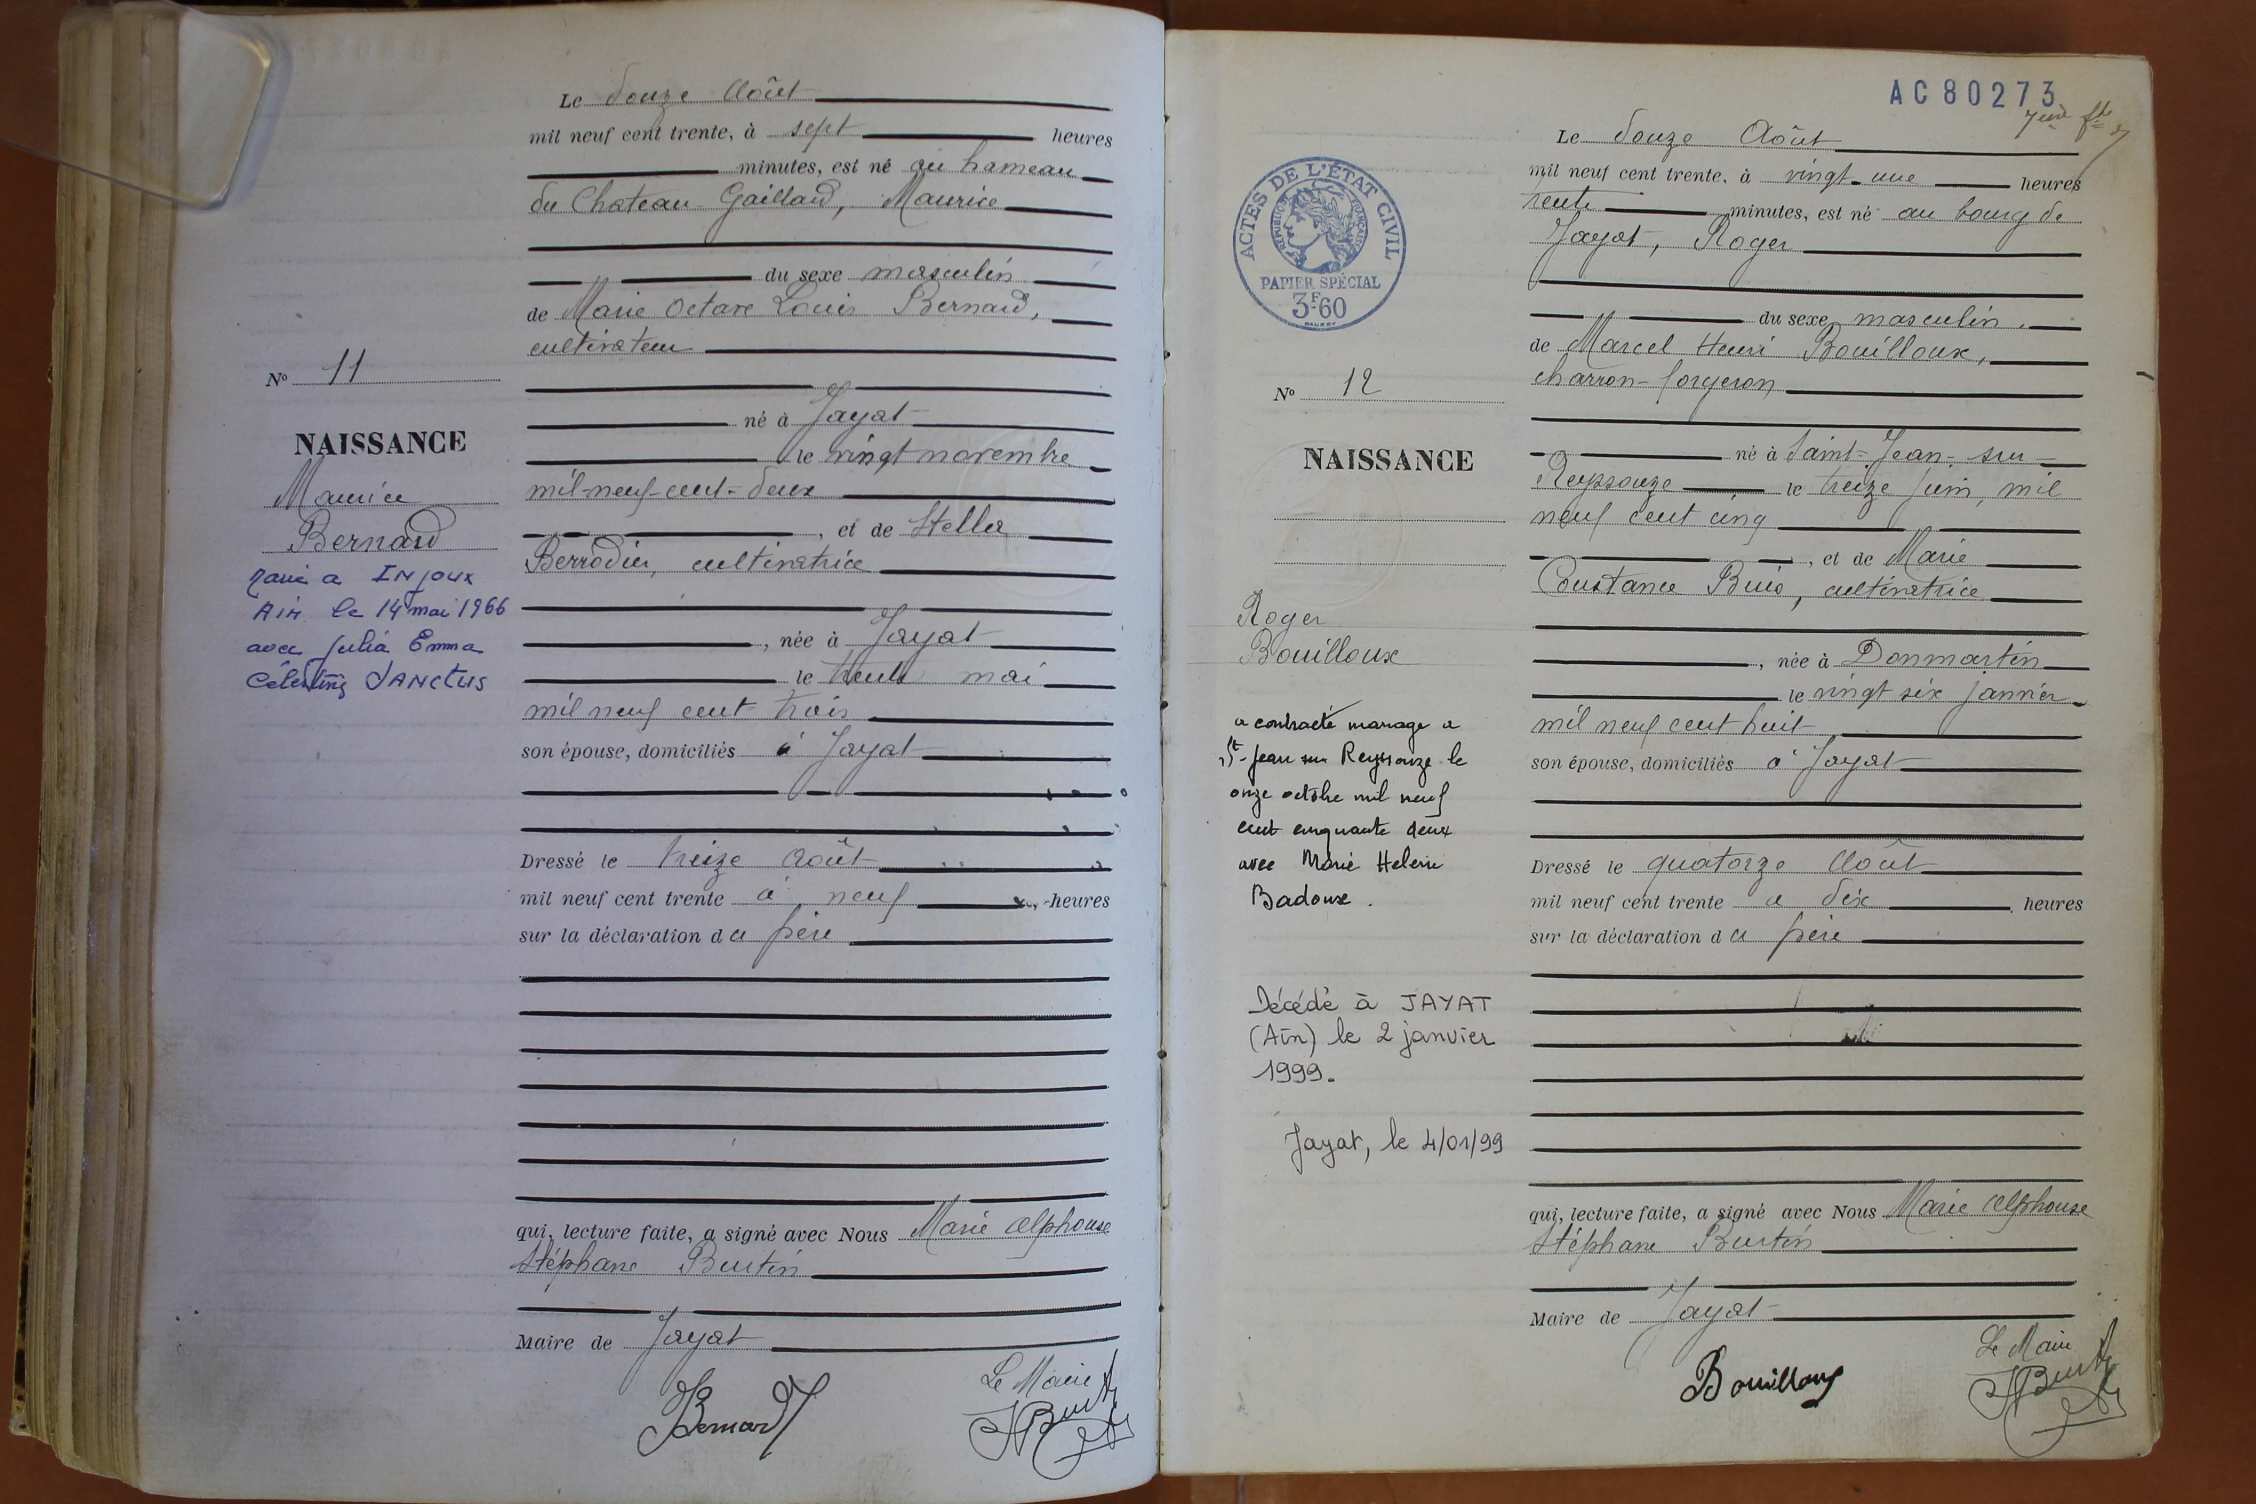 Le douze Août
mil neuf cent trente, à sept heures
minutes, est né au hameau
du Chateau-Gaillard, Maurice
du sexe masculin
de Marie Octave Louis Bernard,
cultivateur
né à Jayat
le vingt novembre
mil-neuf-cent-deux
, et de Stella
Berrodier, cultivatrice
, née à Jayat
le trente mai
mil neuf cent trois
son épouse, domiciliés à Jayat
Dressé le treize Août
mil neuf cent trente à neuf heures
sur la déclaration du père
qui, lecture faite, a signé avec Nous Marie Alphonse
Stéphane Burtin
Maire de Jayat
Bernard
Le Maire
SBurtin
No 11
NAISSANCE
Maurice
Bernard
marié a INJOUX
AIN le 14 mai 1966
avec Julia Emma
Célestine SANCTUS
AC80273
7eme fle
Le douze Août
mil neuf cent trente, à vingt-une heures
trente minutes, est né au bourg de
Jayat, Roger
du sexe masculin.
de Marcel Henri Bouilloux,
charron-forgeron
né à Saint-Jean-sur-
Reyssouze le treize juin, mil
neuf cent cinq
, et de Marie
Constance Buis, cultivatrice
, née à Donmartin
le vingt six janvier
mil neuf cent huit
son épouse, domiciliés à Jayat
Dressé le quatorze Août
mil neuf cent trente a dix heures
sur la déclaration du père
qui, lecture faite, a signé avec Nous Marie Alphonse
Stéphane Burtin
Maire de Jayat
Bouilloux
Le Maire
SBurtin
ACTES DE L'ÉTAT CIVIL
RÉPUBLIQUE FRANÇAISE
PAPIER SPÉCIAL
3F60
No 12
NAISSANCE
Roger
Bouilloux
a contracté mariage a
St-Jean sur Reyssouze le
onze octobre mil neuf
cent cinquante deux
avec Marie Helene
Badoux.
Décédé à JAYAT
(Ain) le 2 janvier
1999.
Jayat, le 4/01/99